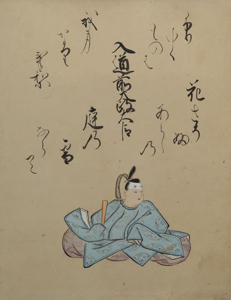 入道前太政大臣
花さそふ
あらしの
庭乃
雪
ならて
ふり
ゆく
ものは
我身
なり